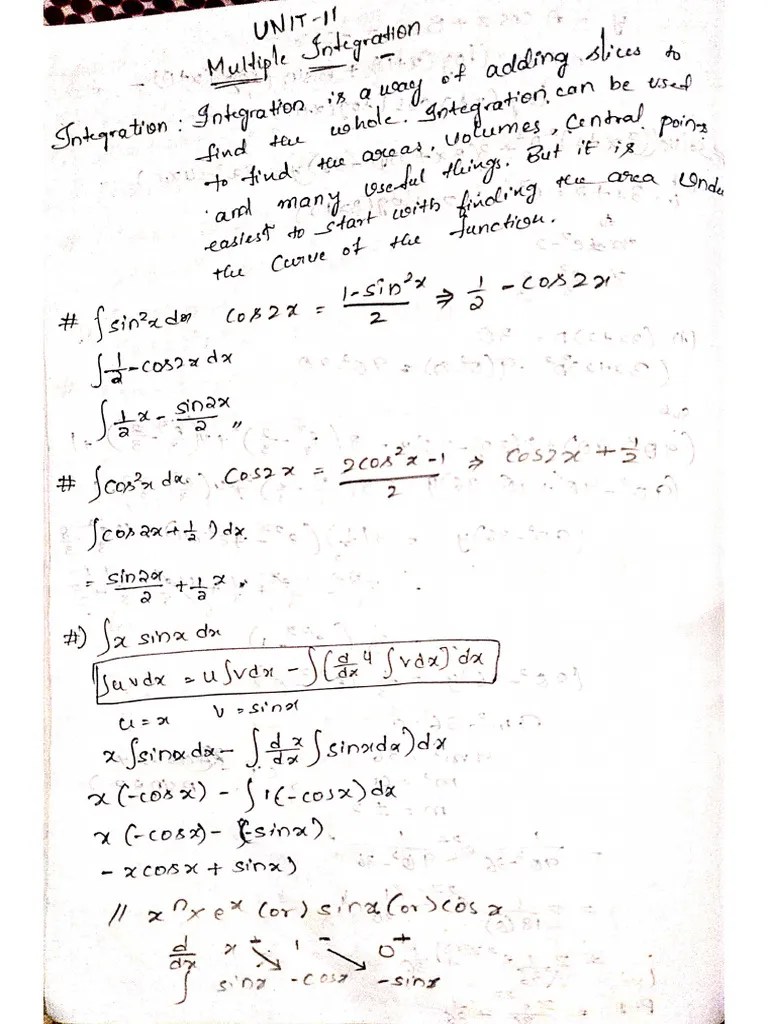 UNIT-11
Multiple Integration
Integration : Integration is a way of adding slices to
find the whole. Integration can be used
to find the areas, volumes, Central points
and many useful things. But it is
easiest to start with finding the area Unde
the Curve of the function.
# ∫sin²x dx cos2x = 1-sin²x/2 ⇒ 1/2 - cos2x
∫1/2 - cos2x dx
∫1/2 x - sin2x/2 ,,
# ∫cos²x dx. Cos2x = 2cos²x-1/2 ⇒ cos2x + 1/2
∫cos2x + 1/2) dx.
= sin2x/2 + 1/2 x .
#) ∫x sinx dx
∫uvdx = u∫vdx - ∫[d/dx u ∫vdx] dx
u = x v = sinx
x∫sinxdx - ∫d/dx x ∫sinxdx)dx
x(-cosx) - ∫1(-cosx)dx
x(-cosx) - (-sinx)
- xcosx + sinx)
// xⁿ x eˣ (or) sinx (or) cosx
d/dx x + 1 - 0+
∫ sinx -cosx -sinx